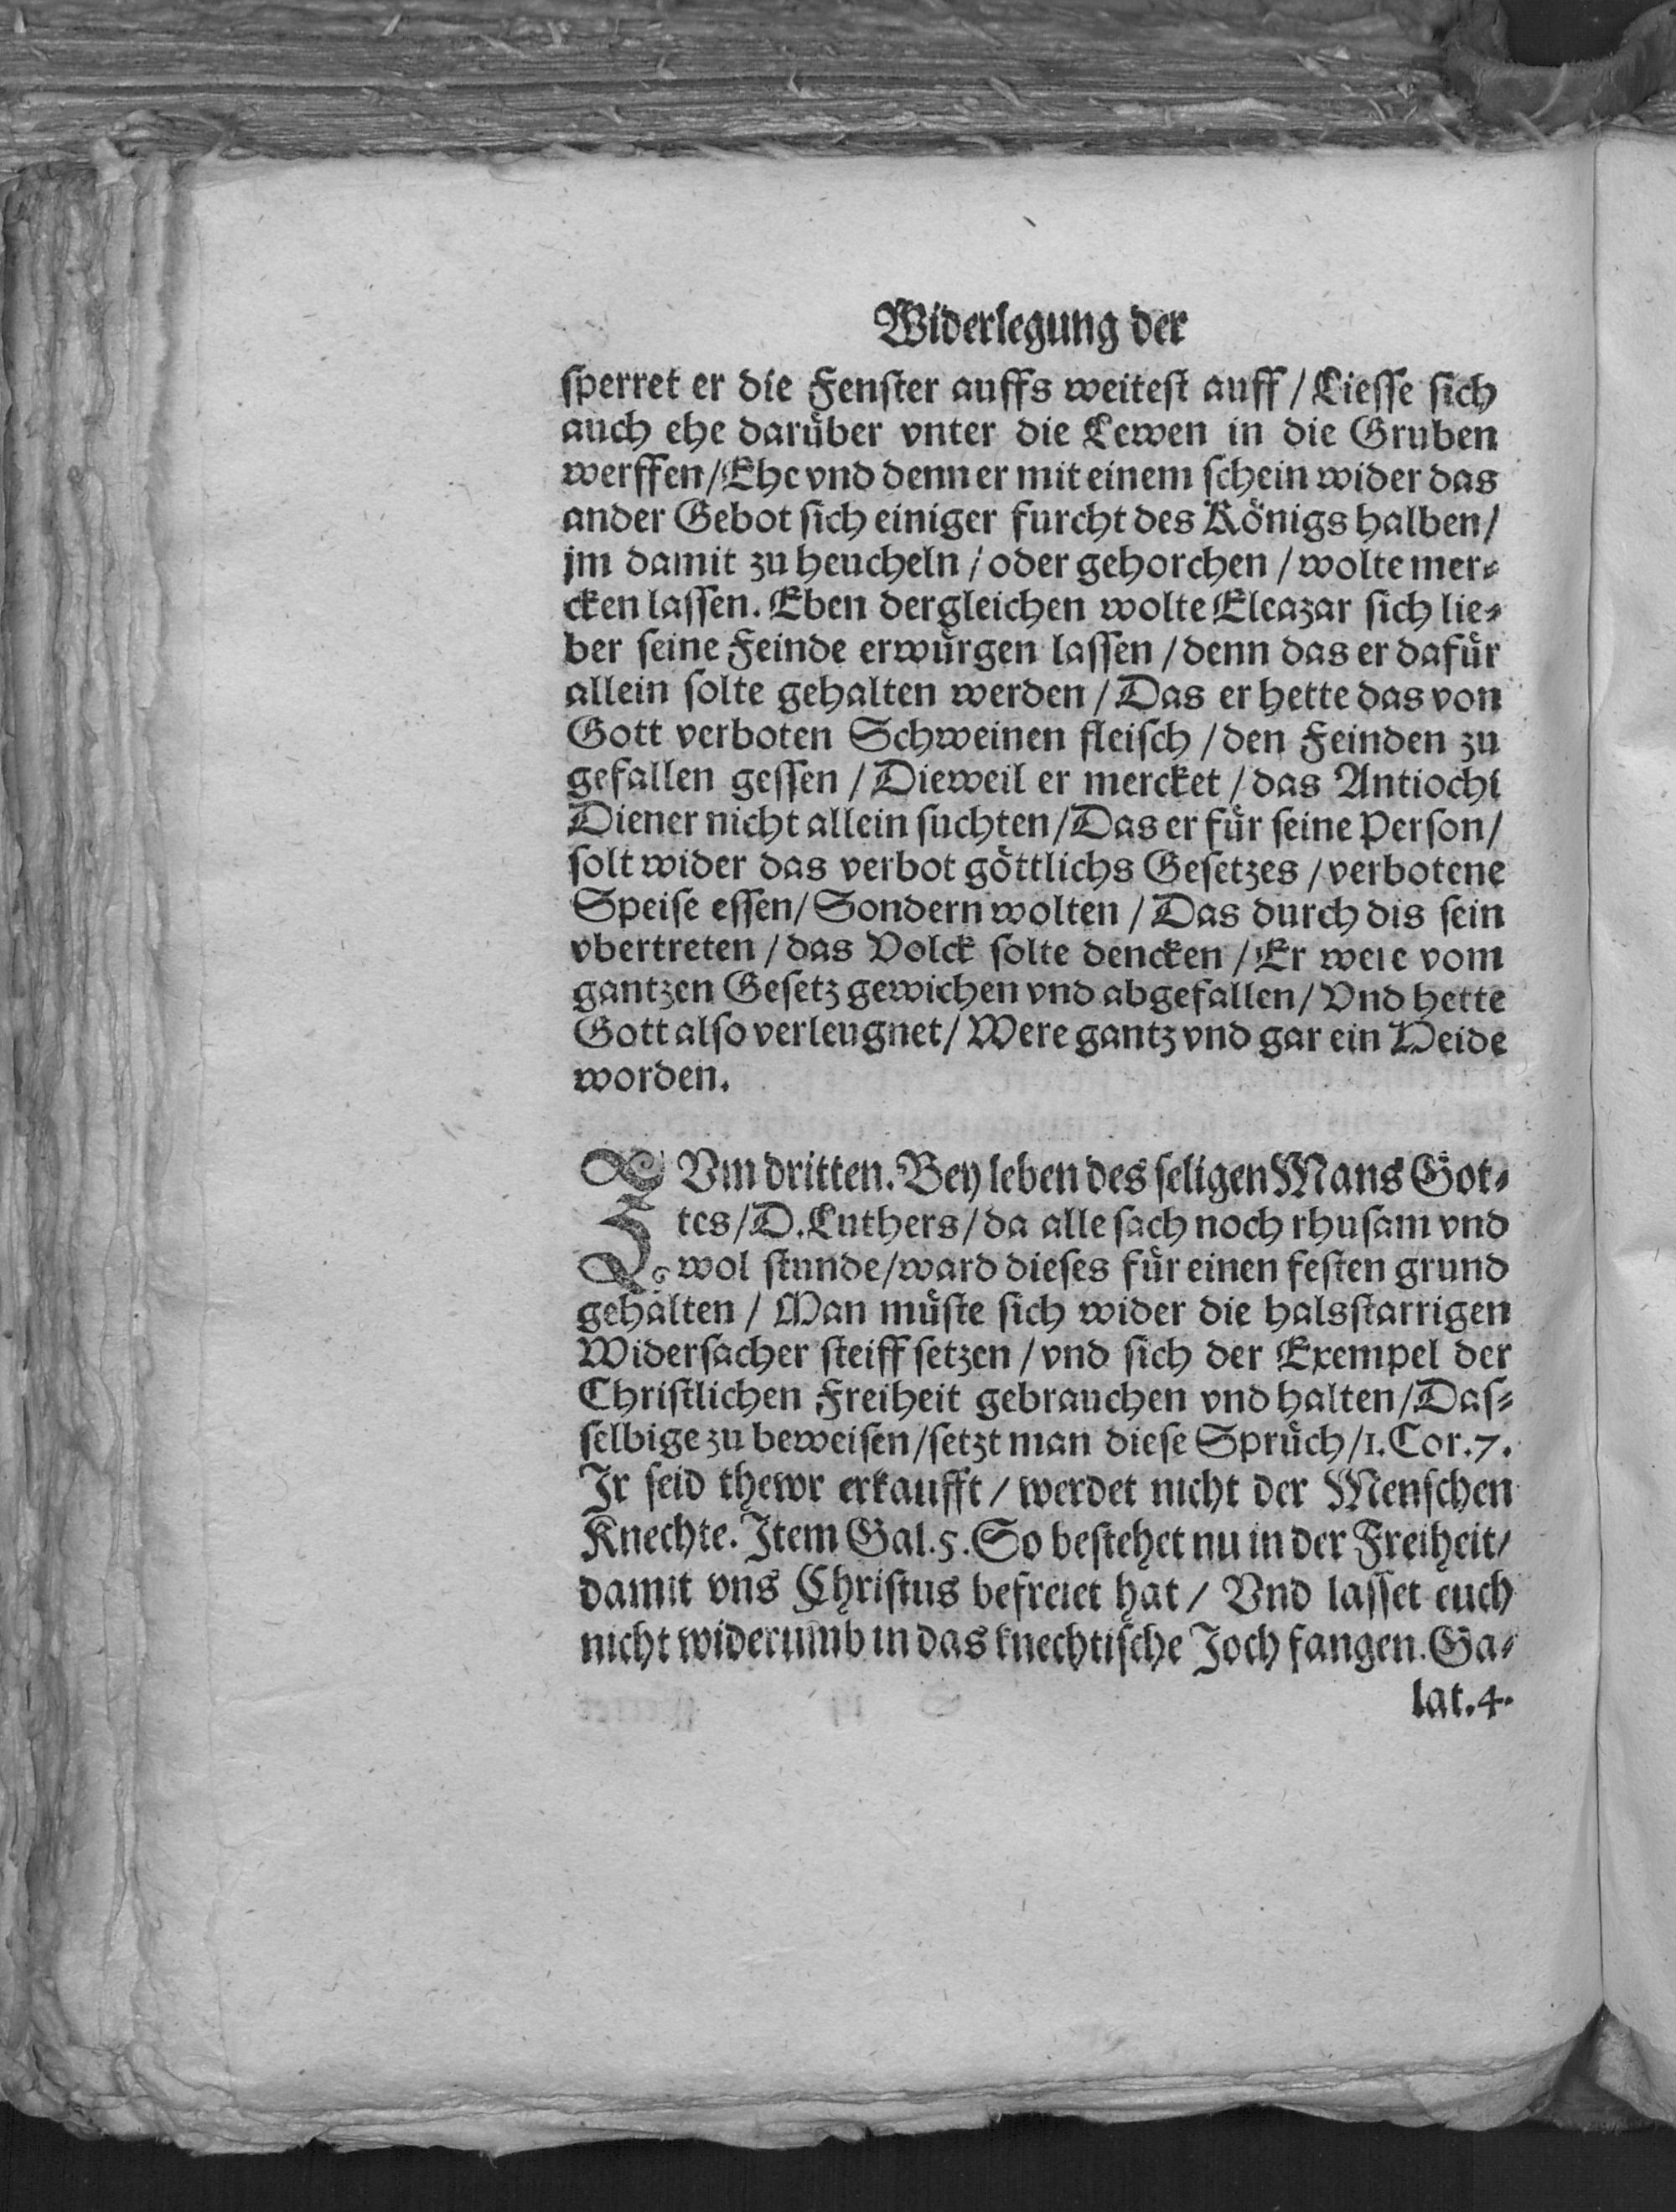 Widerlegung der
sperret er die Fenster auffs weitest auff / Liesse sich
auch ehe darüber vnter die Lewen in die Gruben
werffen / Ehe vnd denn er mit einem schein wider das
ander Gebot sich einiger furcht des Königs halben /
jm damit zu heucheln / oder gehorchen / wolte mer-
cken lassen. Eben dergleichen wolte Eleazar sich lie-
ber seine Feinde erwürgen lassen / denn das er dafür
allein solte gehalten werden / Das er hette das von
Gott verboten Schweinen fleisch / den Feinden zu
gefallen gessen / Dieweil er mercket / das Antiochi
Diener nicht allein suchten / Das er für seine Person /
solt wider das verbot göttlichs Gesetzes / verbotene
Speise essen / Sondern wolten / Das durch dis sein
vbertreten / das Volck solte dencken / Er were vom
gantzen Gesetz gewichen vnd abgefallen / Vnd hette
Gott also verleugnet / Were gantz vnd gar ein Heide
worden.
ZVm dritten. Bey leben des seligen Mans Got-
tes / D. Luthers / da alle sach noch rhusam vnd
wol stunde / ward dieses für einen festen grund
gehalten / Man müste sich wider die halsstarrigen
Widersacher steiff setzen / vnd sich der Exempel der
Christlichen Freiheit gebrauchen vnd halten / Das-
selbige zu beweisen / setzt man diese Sprüch / 1. Cor. 7.
Jr seid thewr erkaufft / werdet nicht der Menschen
Knechte. Jtem Gal. 5. So bestehet nu in der Freiheit /
damit vns Christus befreiet hat / Vnd lasset euch
nicht widerumb in das knechtische Joch fangen. Ga-
lat. 4.